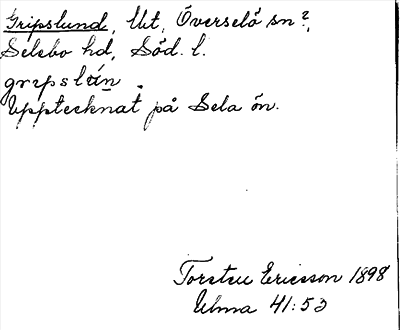 Gripslund, Ut, Överselö sn?,
Selebo hd, Söd. l.
gripslun.
Upptecknat på Sela ön.
Torsten Ericsson 1898
Ulma 41:53